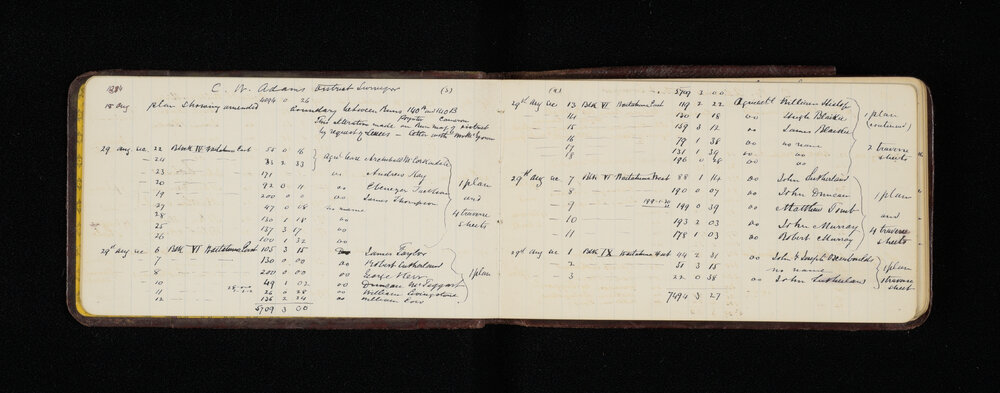 1884 C. W. Adams District Surveyor (3)
4094 0 26
18 Aug plan showing amended boundary between Runs 140A and 140B
Poynter Cameron
This alteration made on Run map of district
by request of Lessees - letter with
29 Aug sec 22 Block IV Waitahuna East 55 0 16 Agri. lease Archibald McCorkindale
- 24 33 2 33
- 23 171 do Andrew Kay
- 20 92 0 11 do Ebenezer
- 19 200 0 0 do James Thompson
- 27 47 0 18 no name
- 28 130 1 18 do
- 25 137 3 17 do
- 26 100 1 32 do
1 plan
and
4 traverse
sheets
29th Aug sec 6 Blk VI Waitahuna East 105 3 15 do James Taylor
7 130 0 00 do Robert Sutherland
8 200 0 00 do George Kerr
10 49 1 02 do Duncan McTaggart
11 26 0 28 do William Livingstone
12 136 2 24 do William
1 plan
5709 3 00
(4)
5709 3 00
29th Aug sec 13 Blk VI Waitahuna East 169 2 22 Agricult William Hislop
- 14 130 1 18 do Hugh Blaikie
- 15 139 3 12 do James Blaikie
- 16 79 1 38 no name
- 17 131 1 39 do do
- 18 196 0 38 do do
1 plan
(continued)
2 traverse
sheets
29th Aug sec 7 Blk VI Waitahuna West 88 1 14 do John Sutherland
- 8 190 0 07 do John Duncan
- 9 199 0 39 do Matthew
- 10 193 2 03 do John Murray
- 11 178 1 03 do Robert Murray
1 plan
and
4 traverse
sheets
29th Aug sec 1 Blk IX Waitahuna West 44 2 31 do John & Joseph
- 2 51 3 15 no name
- 3 22 0 38 do John Sutherland
1 plan
1 traverse
sheet
7494 3 27